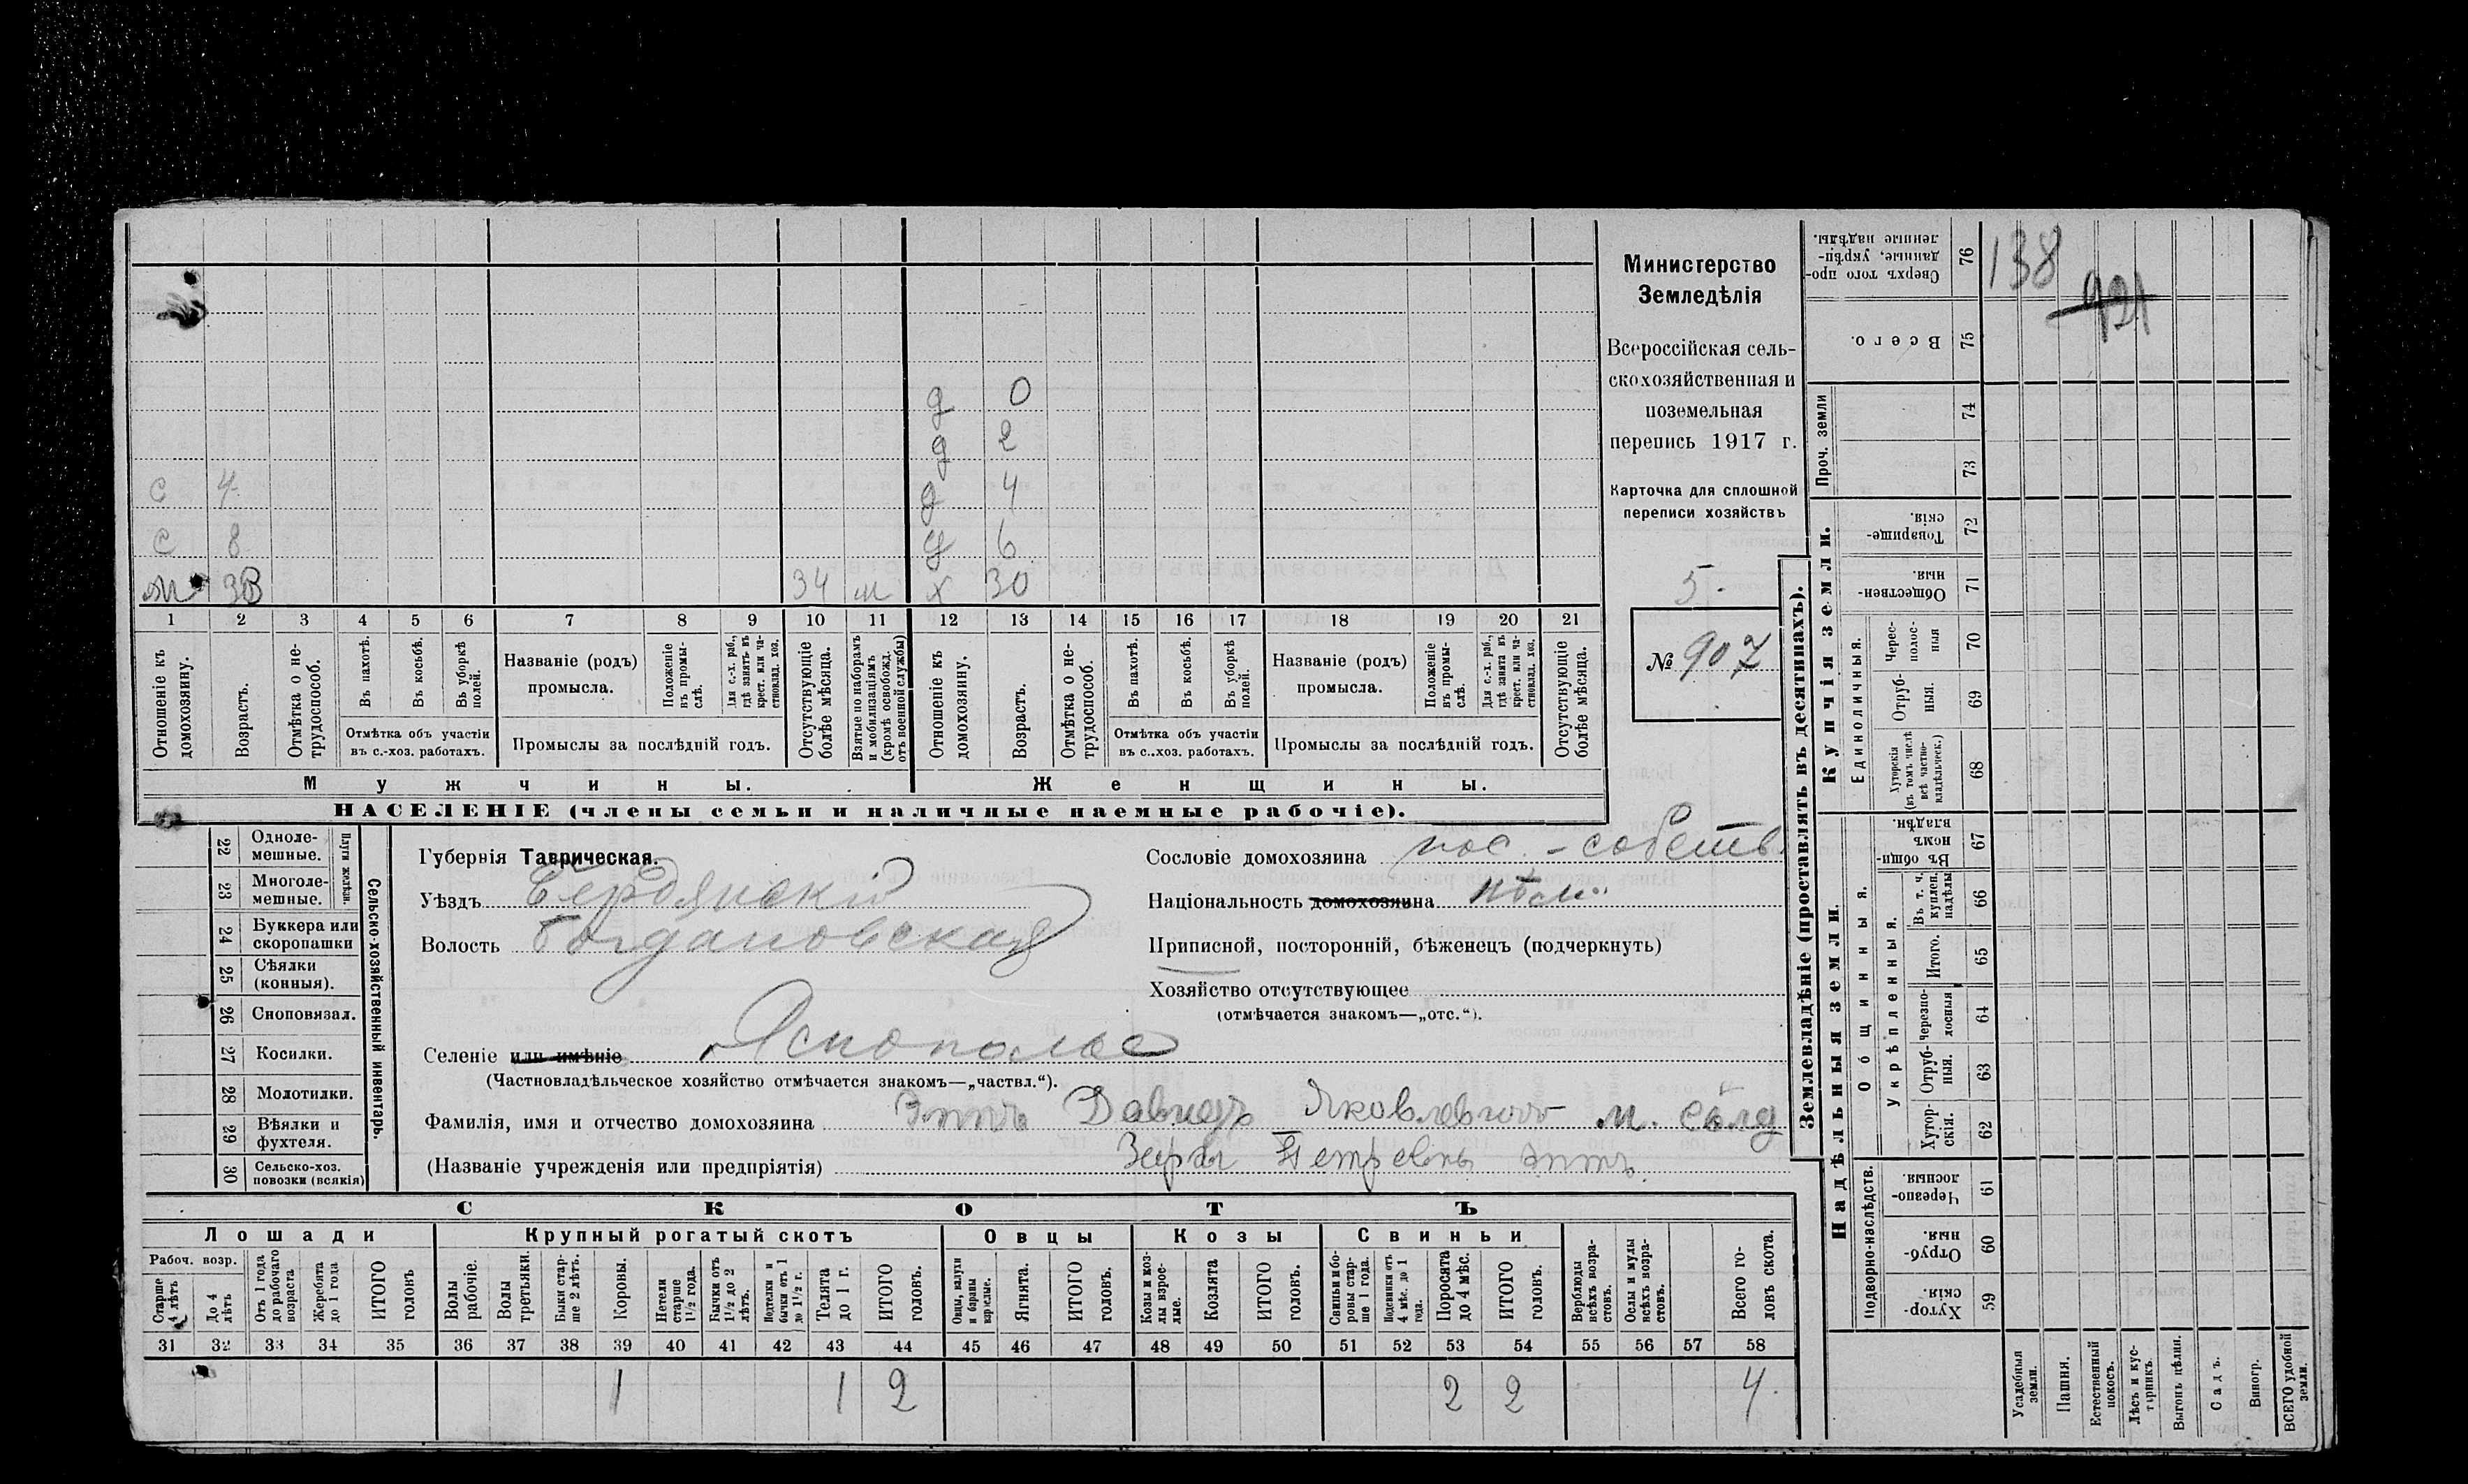 138
921
Министерство
Земледѣлія
Всероссійская сель-
скохозяйственная и
поземельная
перепись 1917 г.
Карточка для сплошной
переписи хозяйствъ
5.
№ 907
д 0
д 2
с 4 д 4
с 8 д 6
м 33 34 м х 30
1 2 3 4 5 6 7 8 9 10 11 12 13 14 15 16 17 18 19 20 21
Отношеніе къ домохозяину.
Возрастъ.
Отмѣтка о не-трудоспособ.
Въ пахотѣ.
Въ косьбѣ.
Въ уборкѣ полей.
Отмѣтка объ участіи
въ с.-хоз. работахъ.
Названіе (родъ)
промысла.
Положеніе въ промы-слѣ.
Для с.-х. раб., гдѣ занятъ въ крест. или ча-стновлад. хоз.
Промыслы за послѣдній годъ.
Отсутствующіе болѣе мѣсяца.
Взятые по наборамъ и мобилизаціямъ (кромѣ освобожд. отъ военной службы)
Отношеніе къ домохозяину.
Возрастъ.
Отмѣтка о не-трудоспособ.
Въ пахотѣ.
Въ косьбѣ.
Въ уборкѣ полей.
Отмѣтка объ участіи
въ с.-хоз. работахъ.
Названіе (родъ)
промысла.
Положеніе въ промы-слѣ.
Для с.-х. раб., гдѣ занята въ крест. или ча-стновлад. хоз.
Промыслы за послѣдній годъ.
Отсутствующіе болѣе мѣсяца.
Мужчины. Женщины.
НАСЕЛЕНІЕ (члены семьи и наличные наемные рабочіе).
Сельско-хозяйственный инвентарь.
Плуги желѣзн.
22 Одноле-мешные.
23 Многоле-мешные.
24 Буккера или скоропашки
25 Сѣялки (конныя).
26 Сноповязал.
27 Косилки.
28 Молотилки.
29 Вѣялки и фухтеля.
30 Сельско-хоз. повозки (всякія)
Губернія Таврическая.
Уѣздъ Бердянскій
Волость Богдановская
Селеніе или имѣніе Яснополье
(Частновладѣльческое хозяйство отмѣчается знакомъ—„частвл.“).
Фамилія, имя и отчество домохозяина Эппъ Давидъ Яковлевичъ м.
(Названіе учрежденія или предпріятія) Петревны Эппъ
Сословіе домохозяина пос.-собств.
Національность домохозяина нѣм.
Приписной, посторонній, бѣженецъ (подчеркнуть)
Хозяйство отсутствующее
(отмѣчается знакомъ—„отс.“).
СКОТЪ
Лошади Крупный рогатый скотъ Овцы Козы Свиньи
Рабоч. возр.
Старше 4 лѣтъ
До 4 лѣтъ
Отъ 1 года до рабочаго возраста
Жеребята до 1 года
ИТОГО головъ
Волы рабочіе.
Волы третьяки.
Быки стар-ше 2 лѣтъ.
Коровы.
Нетели старше 1½ года.
Бычки отъ 1½ до 2 лѣтъ.
Подтелки и бычки отъ 1 до 1½ г.
Телята до 1 г.
ИТОГО головъ.
Овцы, валухи и бараны взрослые.
Ягнята.
ИТОГО головъ.
Козы и коз-лы взрос-лые.
Козлята
ИТОГО головъ.
Свиньи и бо-ровы стар-ше 1 года.
Подсвинки отъ 4 мѣс. до 1 года.
Поросята до 4 мѣс.
ИТОГО головъ.
Верблюды всѣхъ возра-стовъ.
Ослы и мулы всѣхъ возра-стовъ.
Всего го-ловъ скота.
31 32 33 34 35 36 37 38 39 40 41 42 43 44 45 46 47 48 49 50 51 52 53 54 55 56 57 58
1 1 2 2 2 4.
Землевладѣніе (проставлять въ десятинахъ).
Купчія земли.
Надѣльныя земли.
Сверхъ того про-данные, укрѣп-ленные надѣлы. 76
Всего. 75
Проч. земли 74 73
Товарище-скія. 72
Обществен-ныя. 71
Единоличныя.
Черес-полос-ныя 70
Отруб-ныя. 69
Хуторскія (въ томъ числѣ всѣ частно-владѣльческ.) 68
Общинныя.
Въ общин-номъ владѣн. 67
Укрѣпленныя.
Въ т. ч. куплен. надѣлы 66
Итого. 65
Черезпо-лосныя 64
Отруб-ныя. 63
Хутор-скія. 62
Подворно-наслѣдств.
Черезпо-лосныя 61
Отруб-ныя. 60
Хутор-скія. 59
Усадебныя земли.
Пашня.
Естественный покосъ.
Лѣсъ и кус-тарникъ.
Выгонъ цѣлин.
Садъ.
Виногр.
ВСЕГО удобной земли.